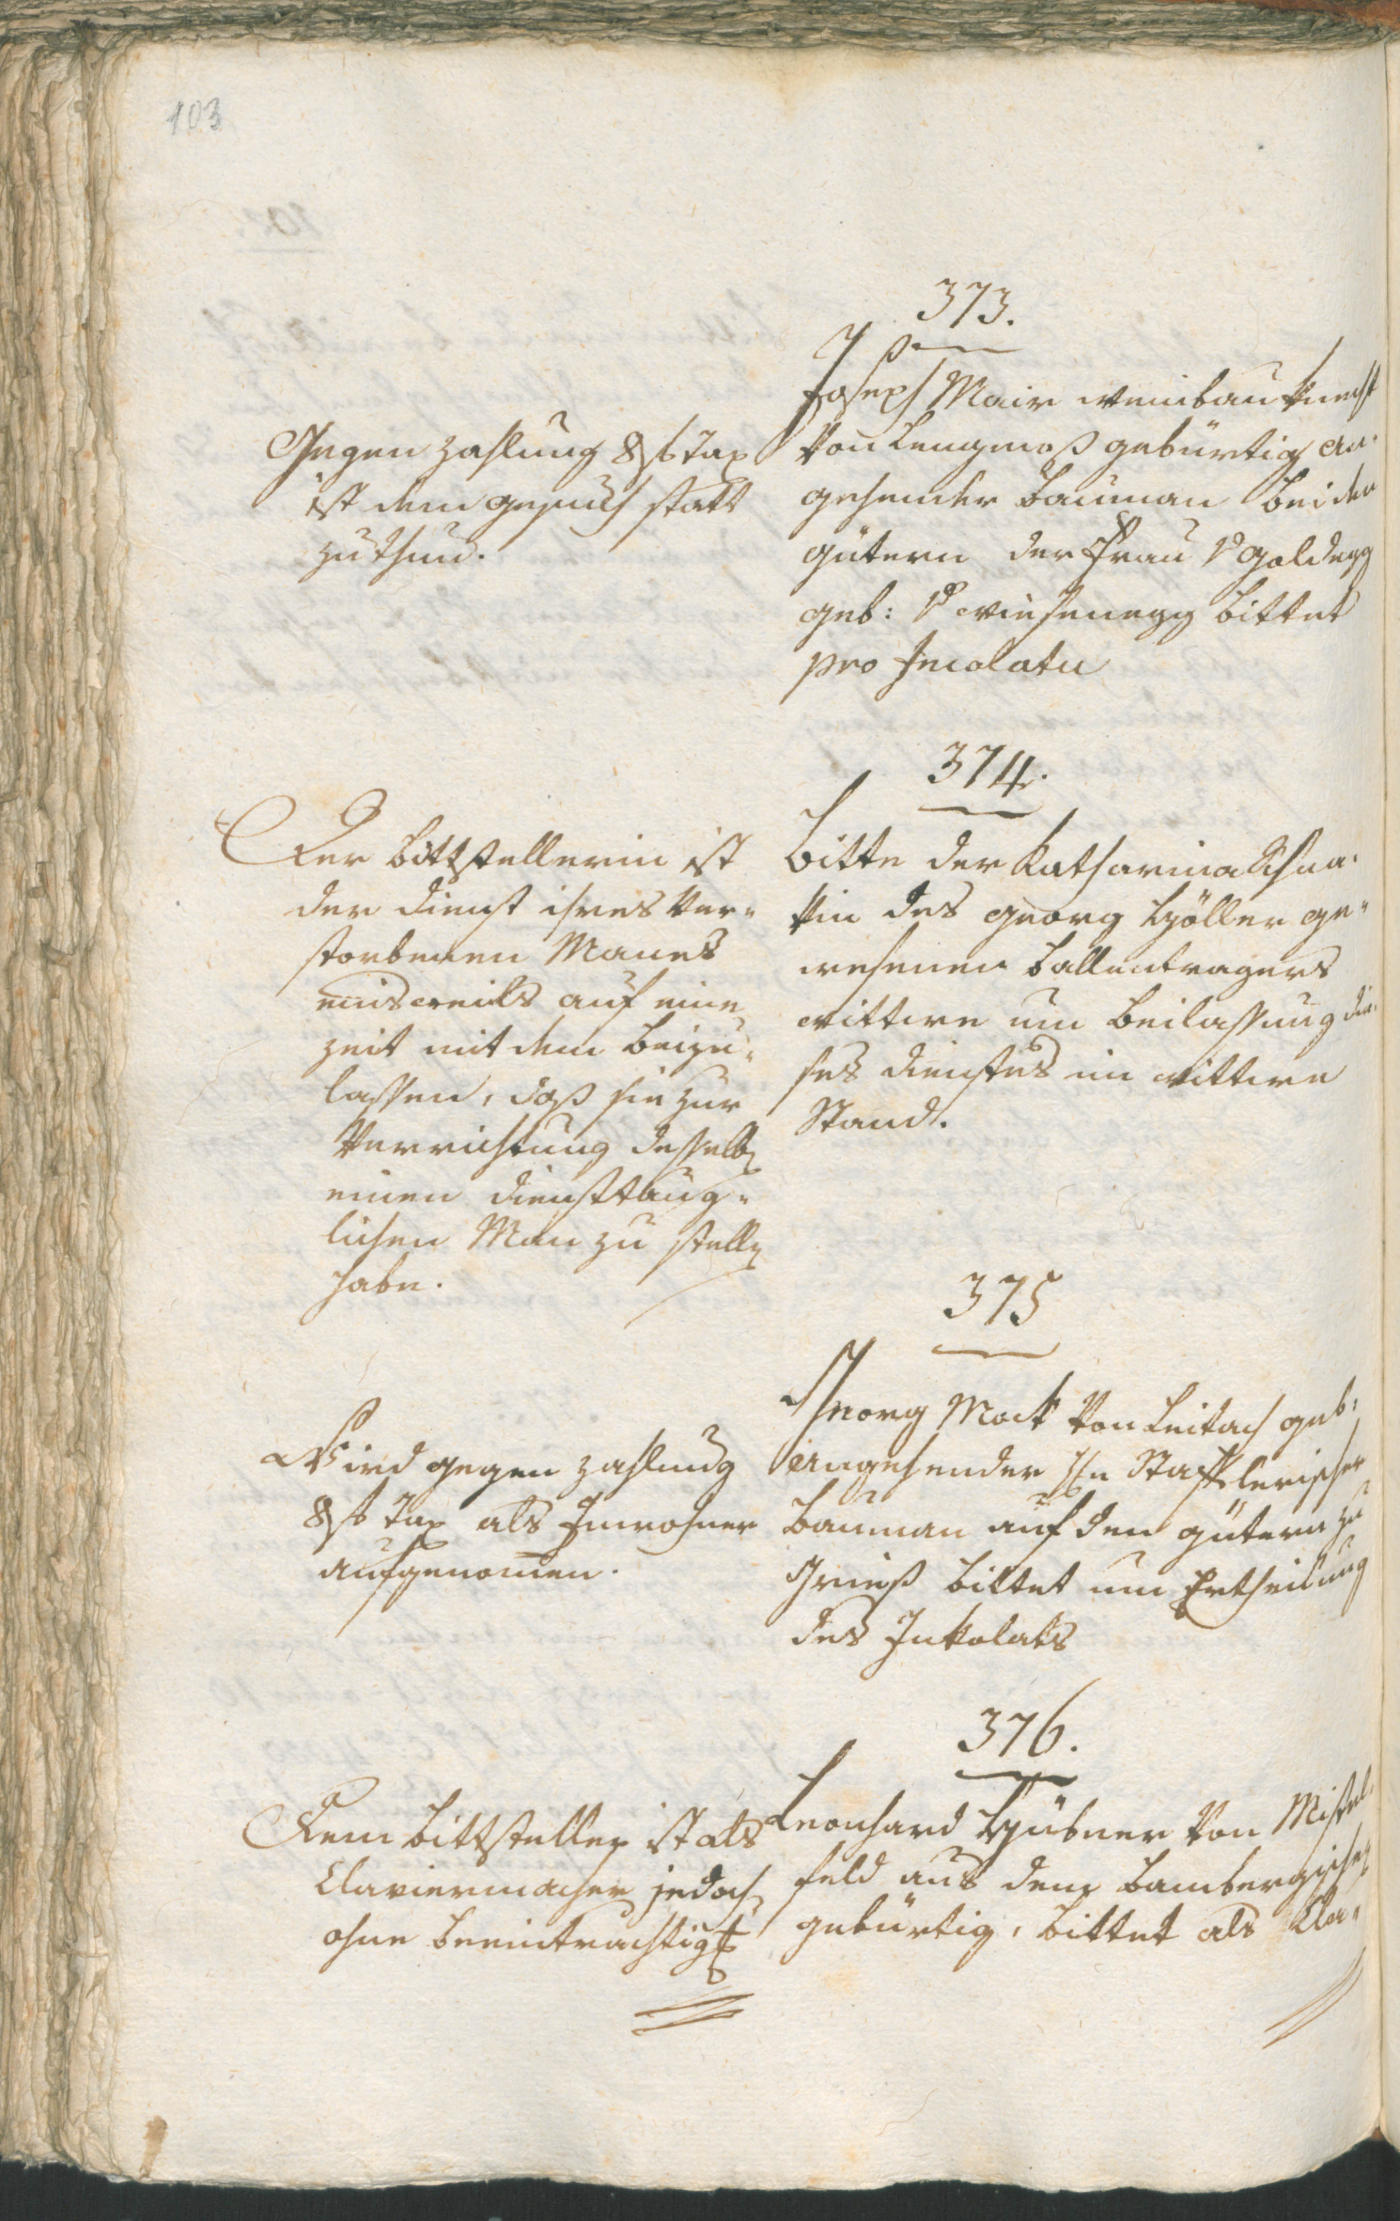 103
373.
Joseph Mair weinbau Knecht
von Lengmoß gebürtig an-
gehender Bauman bei den
Gütern der Frau v Goldegg
geb: v wiesenegg bittet
pro Incolatu
Gegen Zahlung 8 f Tax
ist dem gesuch statt
zu thun.
374.
Bitte der Katharina
des Georg Höller ge-
wesenen Ballentragers
wittwe um Beilassung die-
ses Dienstes im wittwe
Stand.
Der Bittstellerin ist
der Dienst ihres ver-
storbenen Manes
einsweils auf eine
Zeit mit dem beizu-
lassen, daß sie zur
Verrichtung desselb
einen diensttaug-
lichen Man zu stell
habe.
375
Georg Mock von Leitach geb:
angehender Staflerischer
Bauman auf den Gütern zu
Grieß bittet um Ertheilung
des Inkolats
Wird gegen Zahlung
8 f Tax als Inwohner
aufgenomen.
376.
Leonhard Hübner von Mistel-
feld aus dem Bambergischen
gebürtig, bittet als Cla-
Dem Bittsteller ist als
Claviermacher jedoch
ohne Beeintrachtig